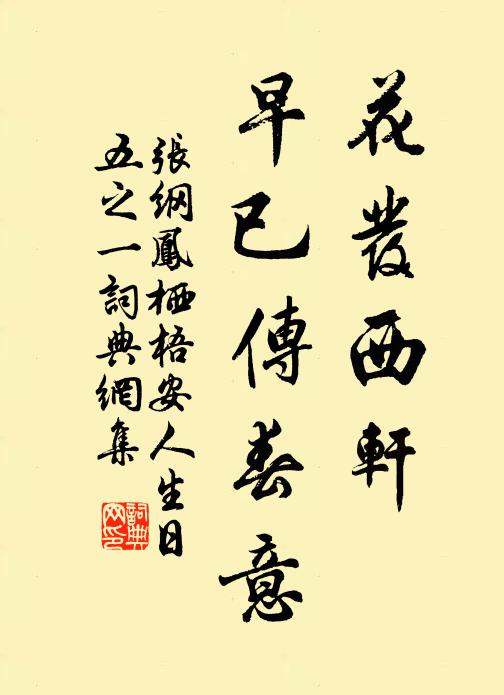 花發西軒
早已傳春意
張綱鳳栖梧安人生日
五之一詞典網集
詞典
网印